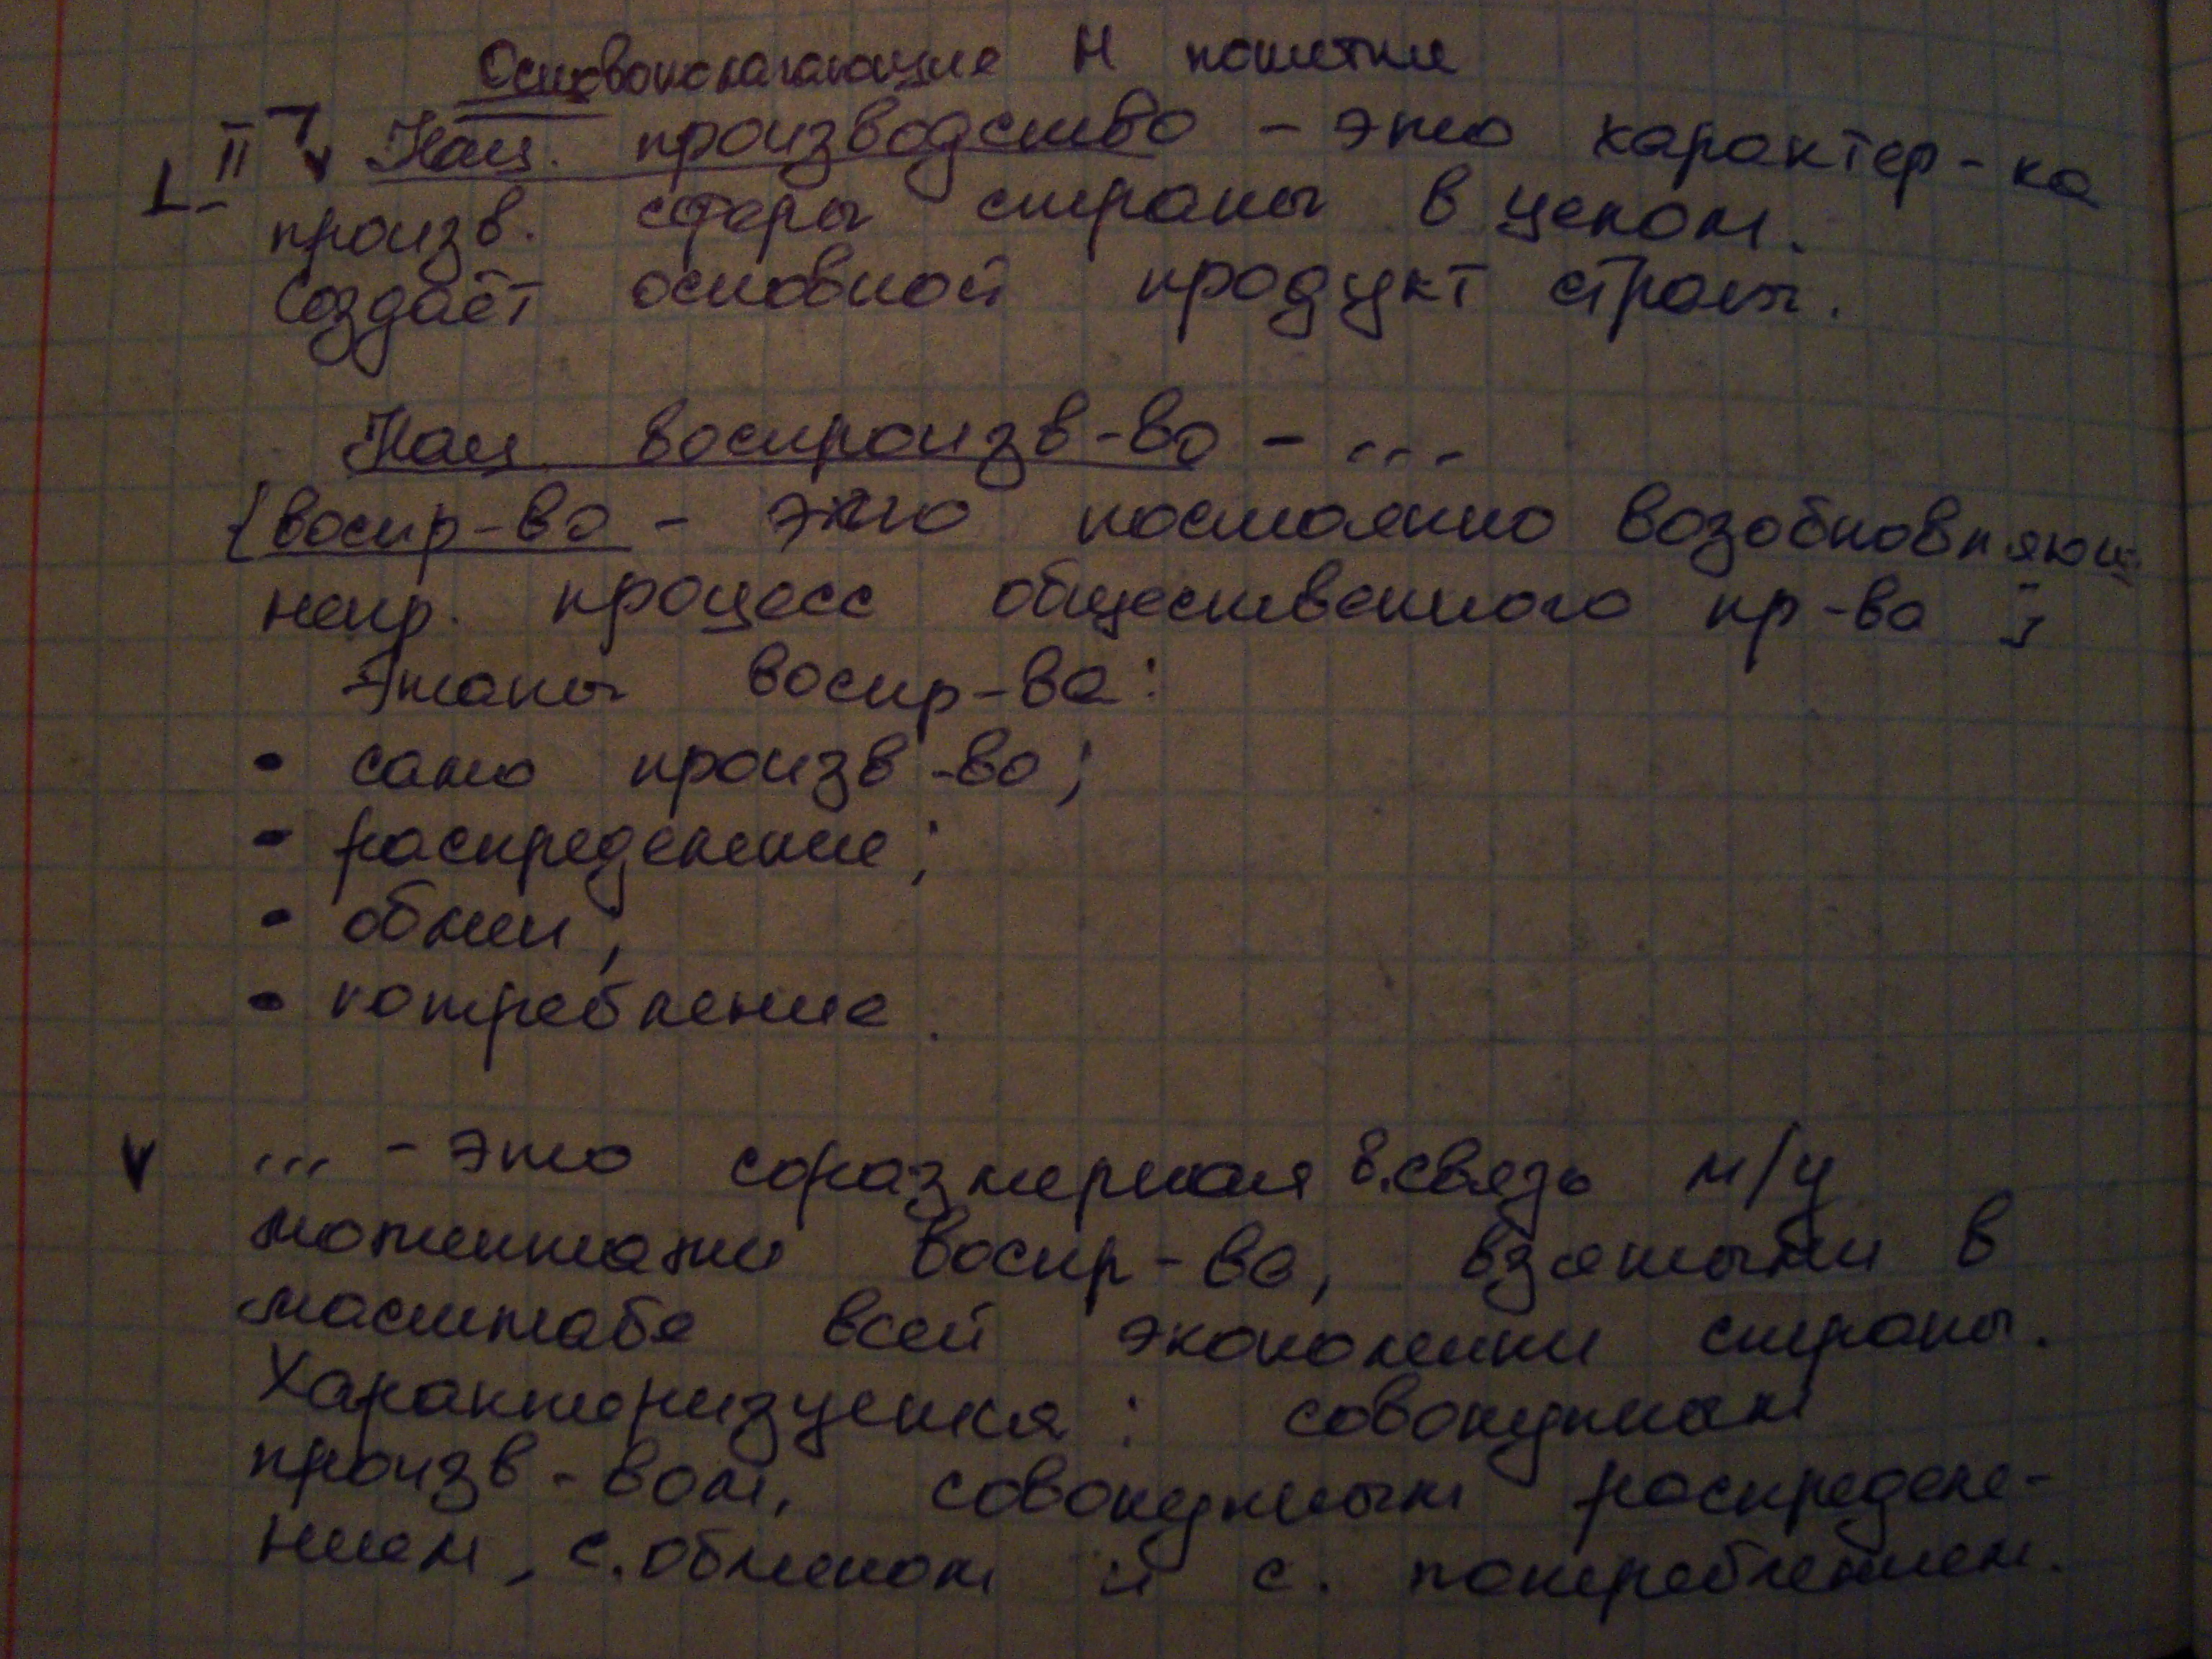 Основополагающие Н пометки
II Нац. производство - это характер-ка
произв. сферы страны в целом.
Создаёт основной продукт страны.
Нац. воспроизв-во - ...
{воспр-во - это постоянно возобновляющ.
непр. процесс общественного пр-ва }
Этапы воспр-ва:
• само произв-во;
• распределение;
• обмен;
• потребление.
... - это соразмерная в.связь м/у
моментами воспр-ва, взятыми в
масштабе всей экономики страны.
Характеризуется: совокупным
произв-вом, совокупным распределе-
нием, с. обменом и с. потреблением.